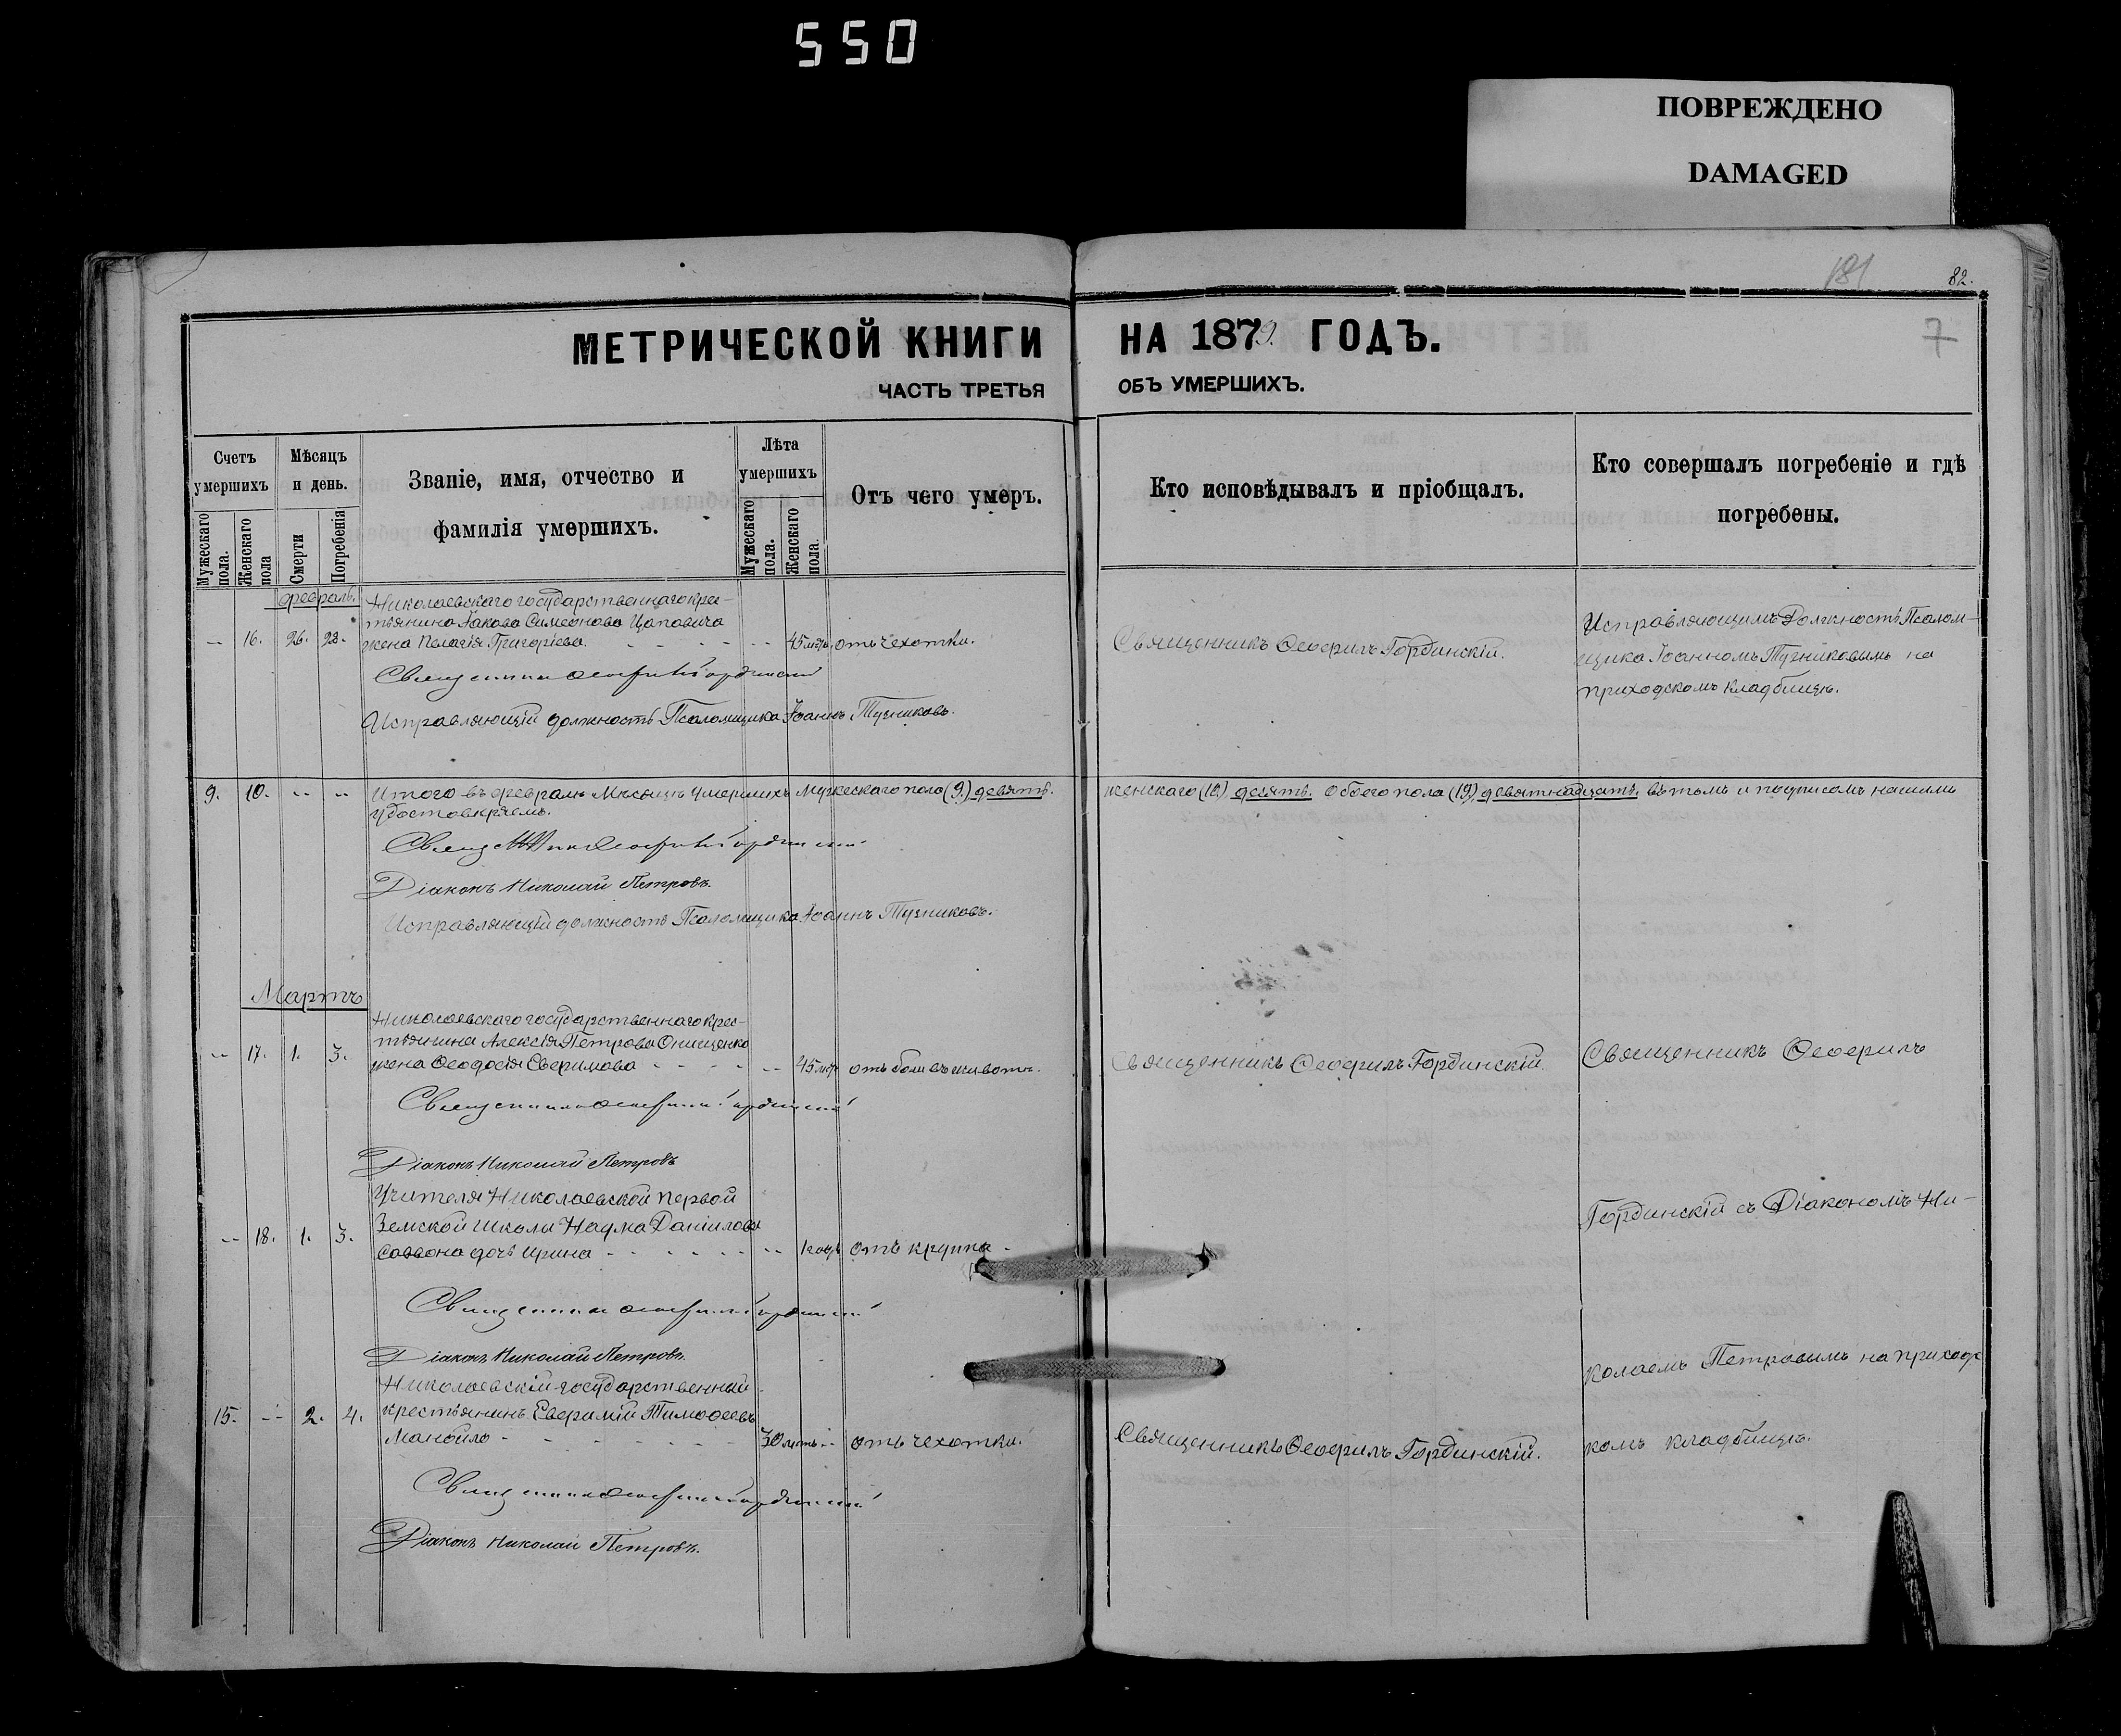 550
ПОВРЕЖДЕНО
DAMAGED
181
82.
МЕТРИЧЕСКОЙ КНИГИ НА 1879. ГОДЪ.
7
ЧАСТЬ ТРЕТЬЯ ОБЪ УМЕРШИХЪ.
Счетъ умершихъ
Мужескаго пола.
Женскаго пола
Мѣсяцъ и день.
Смерти
Погребенія
Званіе, имя, отчество и
фамилія умершихъ.
Лѣта умершихъ
Мужескаго пола.
Женскаго пола.
Отъ чего умеръ.
Кто исповѣдывалъ и пріобщалъ.
Кто совершалъ погребеніе и гдѣ
погребены.
Февраль.
Николаевскаго государственнаго крес-
тьянина Іакова Симеонова Цаповича
-- 16. 26. 28. жена Пелагія Григоріева. - - - - -- 45 лѣтъ отъ чехотки.
Священникъ Ѳеофилъ Гординскій.
Исправляющимъ Должность Псалом-
щика Іоанномъ Тузниковымъ на
приходскомъ кладбищѣ.
Священникъ Ѳеофилъ Гординскій
Исправляющій должность Псаломщика Іоаннъ Тузниковъ.
9. 10. -- -- Итого въ февралѣ Мѣсяцѣ умершихъ Мужескаго пола (9) девять. женскаго (10) десять. Обоего пола (19) девятнадцать. въ томъ и подписомъ нашимъ
удостовѣряемъ.
Священникъ Ѳеофилъ Гординскій
Діаконъ Николай Петровъ.
Исправляющій должность Псаломщика Іоаннъ Тузниковъ.
Мартъ
Николаевскаго государственнаго крес-
тьянина Алексія Петрова Онищенко
-- 17. 1. 3. жена Ѳеодосія Евфимова - - - - -- 45 лѣтъ отъ боли въ животѣ.
Священникъ Ѳеофилъ Гординскій.
Священникъ Ѳеофилъ
Священникъ Ѳеофилъ Гординскій
Діаконъ Николай Петровъ
Учителя Николаевской первой
-- 18. 1. 3. Земской школы Наума Даніилова
Саввона дочь Ирина - - - - - - -- 1 годъ отъ крупа -
Гординскій съ Діакономъ Ни-
Священникъ Ѳеофилъ Гординскій
Діаконъ Николай Петровъ.
колаемъ Петровымъ на приходс
Николаевскій государственный
15. -- 2. 4. крестьянинъ Евфимій Тимоѳеевъ
Манойло - - - - - - 30 лѣтъ -- отъ чехотки.
Священникъ Ѳеофилъ Гординскій.
комъ кладбищѣ.
Священникъ Ѳеофилъ Гординскій
Діаконъ Николай Петровъ.